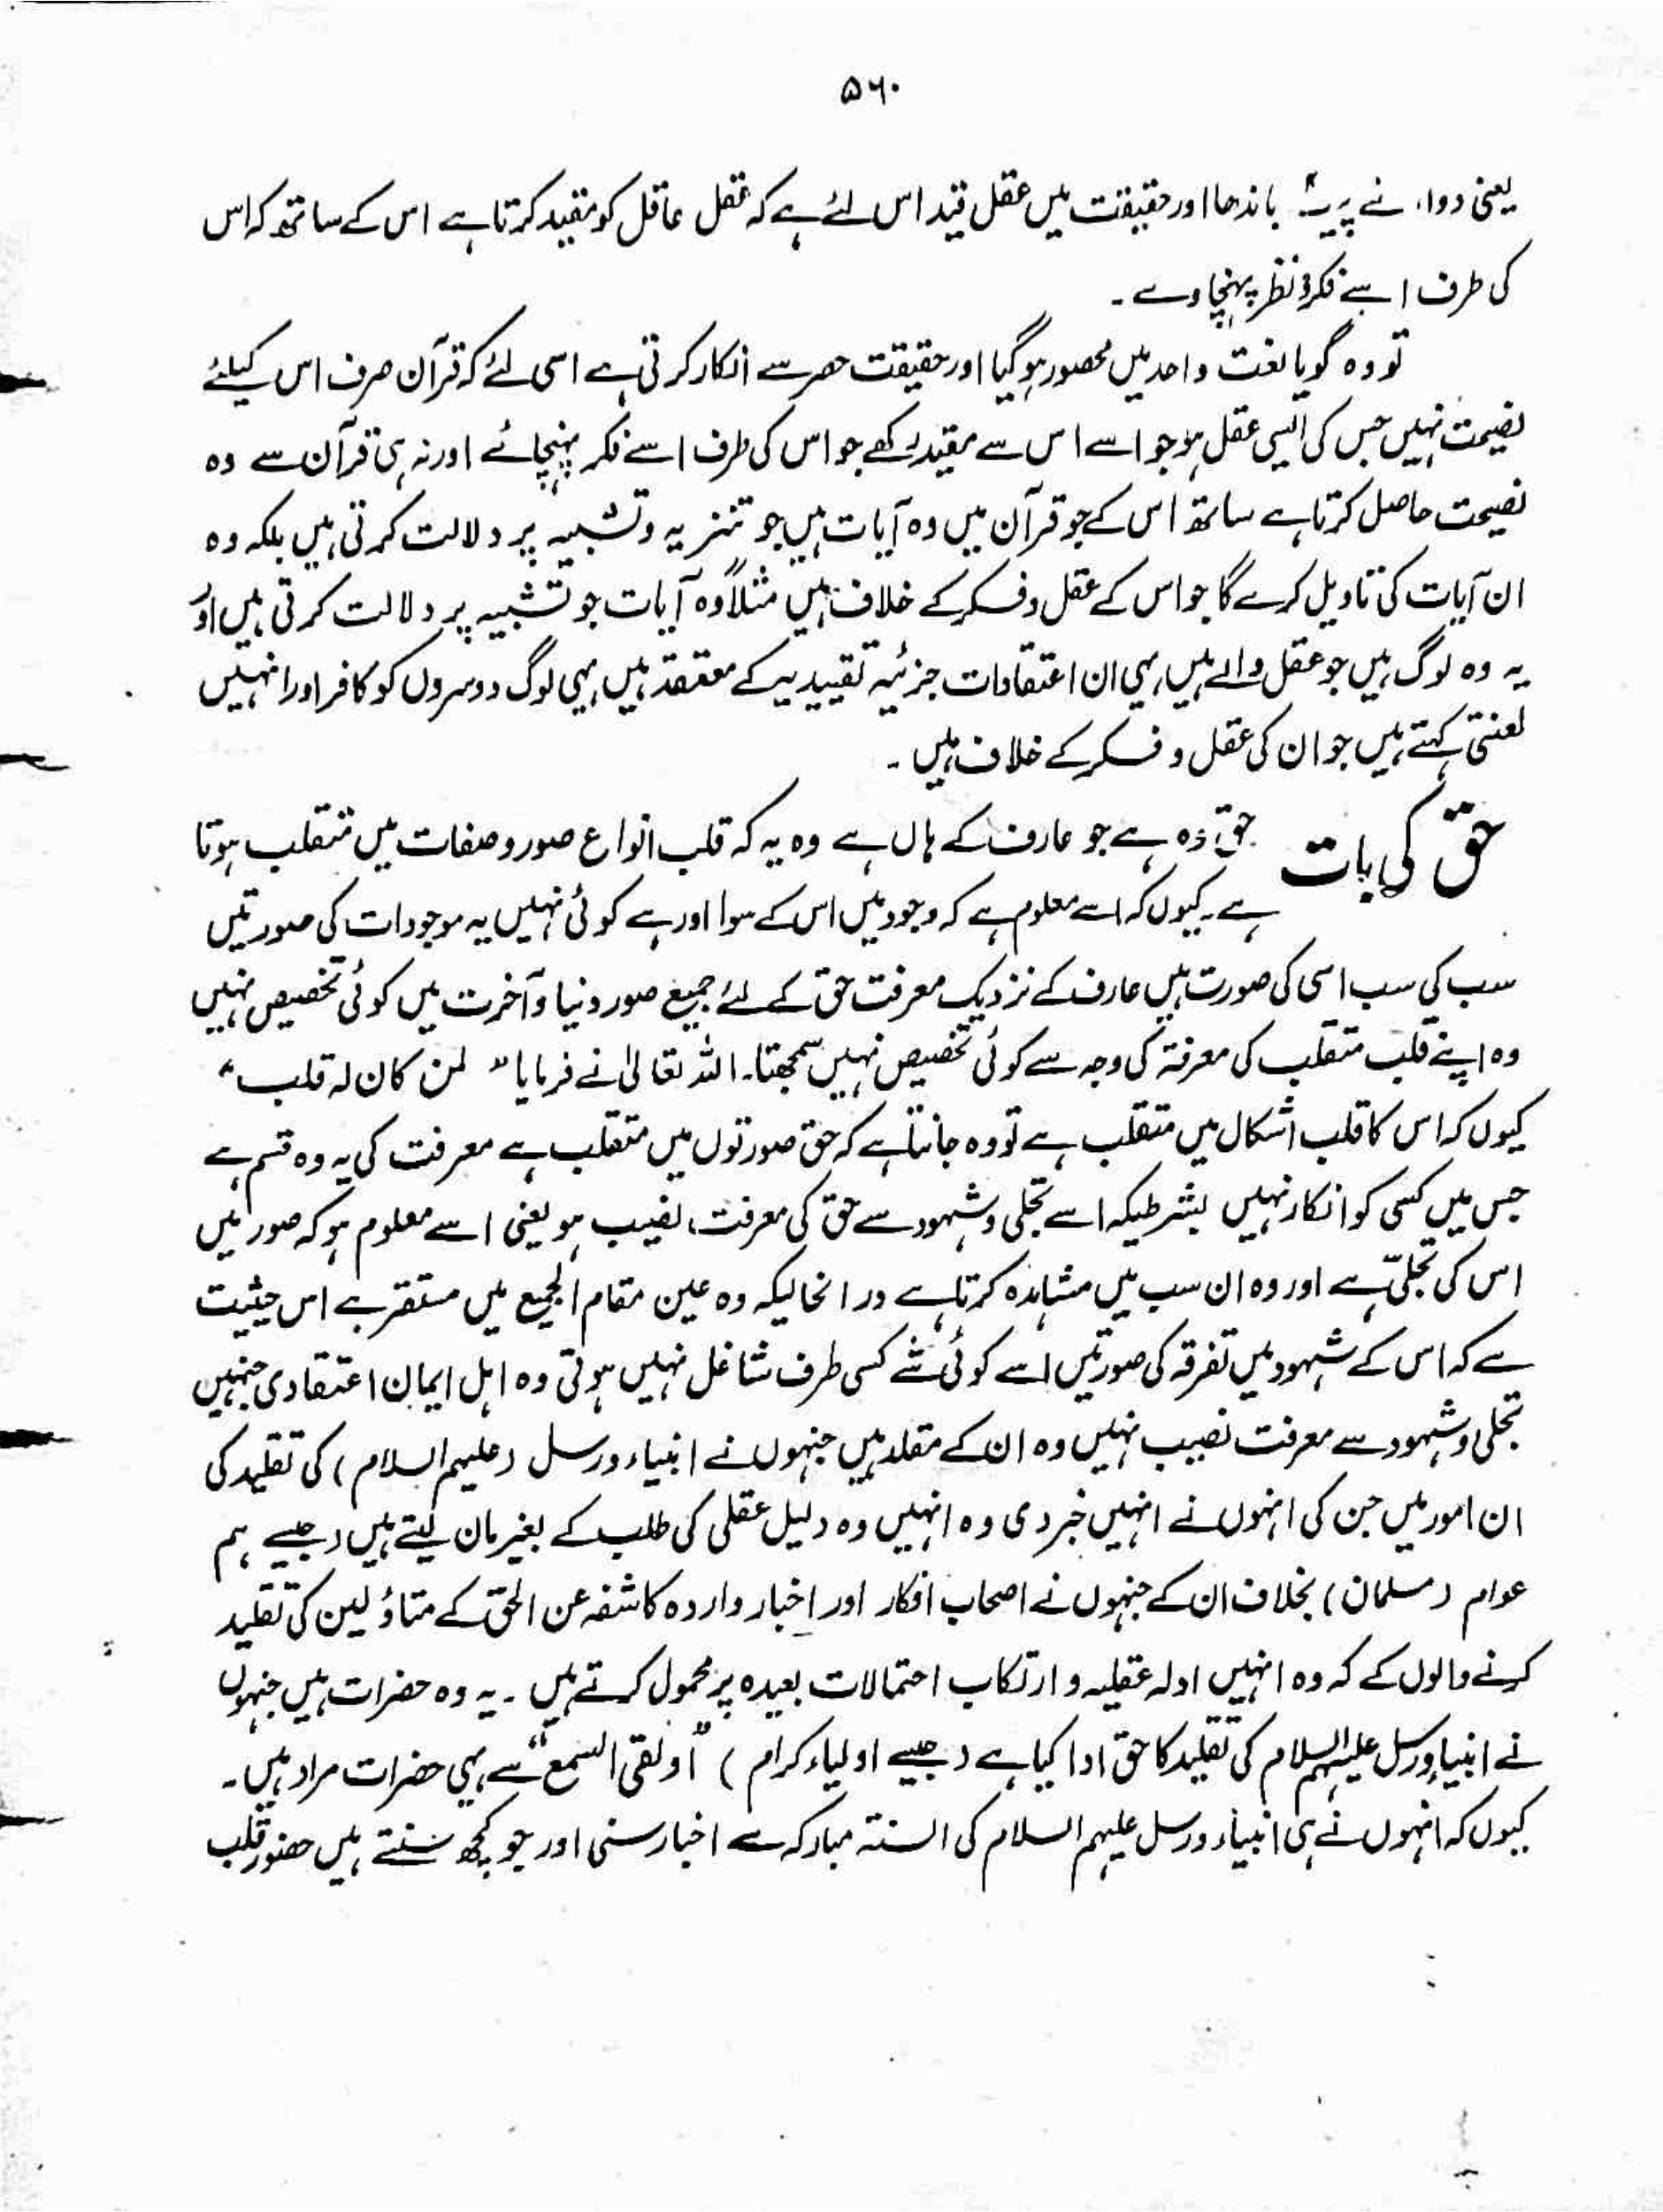 ۵۶۰
یعنی دواء نے پیٹ باندھا اور حقیقت میں عقل قید اس لئے ہے کہ عقل عاقل کو مقید کرتا ہے اس کے ساتھ کہ اس
کی طرف اسے فکر و نظر پہنچاوے ۔
تو وہ گویا نعت واحد میں محصور ہوگیا اور حقیقت حصر سے انکار کرتی ہے اسی لئے کہ قرآن صرف اس کیلئے
نصیحت نہیں جس کی ایسی عقل ہو جو اسے اس سے مقید رکھے جو اس کی طرف اسے فکر پہنچائے اور نہ ہی قرآن سے وہ
نصیحت حاصل کرتا ہے ساتھ اس کے جو قرآن میں وہ آیات ہیں جو تنزیہ و تشبیہ پر دلالت کرتی ہیں بلکہ وہ
ان آیات کی تاویل کرے گا جو اس کے عقل و فکر کے خلاف ہیں مثلاً وہ آیات جو تشبیہ پر دلالت کرتی ہیں اور
یہ وہ لوگ ہیں جو عقل والے ہیں یہی ان اعتقادات جزئیہ تقییدیہ کے معتقد ہیں یہی لوگ دوسروں کو کافر اور انہیں
لعنتی کہتے ہیں جو ان کی عقل و فکر کے خلاف ہیں ۔
حق کی بات حق وہ ہے جو عارف کے ہاں ہے وہ یہ کہ قلب انواع صور و صفات میں متقلب ہوتا
ہے ۔ کیوں کہ اسے معلوم ہے کہ وجود میں اس کے سوا اور ہے کوئی نہیں یہ موجودات کی صورتیں
سب کی سب اسی کی صورت ہیں عارف کے نزدیک معرفت حق کے لئے جمیع صور دنیا و آخرت میں کوئی تخصیص نہیں
وہ اپنے قلب متقلب کی معرفۃ کی وجہ سے کوئی تخصیص نہیں سمجھتا ۔ اللہ تعالیٰ نے فرمایا " لمن کان لہ قلب "
کیوں کہ اس کا قلب اشکال میں متقلب ہے تو وہ جانتا ہے کہ حق صورتوں میں متقلب ہے معرفت کی یہ وہ قسم ہے
جس میں کسی کو انکار نہیں بشرطیکہ اسے تجلی و شہود سے حق کی معرفت نصیب ہو یعنی اسے معلوم ہو کہ صور میں
اس کی تجلیّ ہے اور وہ ان سب میں مشاہدہ کرتا ہے در انحالیکہ وہ عین مقام الجمع میں مستقر ہے اس حیثیت
سے کہ اس کے شہود میں تفرقہ کی صورتیں اسے کوئی شے کسی طرف شاغل نہیں ہوتی وہ اہل ایمان اعتقادی جنہیں
تجلی و شہود سے معرفت نصیب نہیں وہ ان کے مقلد ہیں جنہوں نے انبیاء و رسل (علیہم السلام) کی تقلید کی
ان امور میں جن کی انہوں نے انہیں خبر دی وہ انہیں وہ دلیل عقلی کی طلب کے بغیر مان لیتے ہیں (جیسے ہم
عوام (مسلمان) بخلاف ان کے جنہوں نے اصحاب افکار اور اخبار واردہ کاشفہ عن الحق کے متاؤلین کی تقلید
کرنے والوں کے کہ وہ انہیں ادلہ عقلیہ و ارتکاب احتمالات بعیدہ پر محمول کرتے ہیں ۔ یہ وہ حضرات ہیں جنہوں
نے انبیاء و رسل علیہم السلام کی تقلید کا حق ادا کیا ہے (جیسے اولیاء کرام) "او لقی السمع" سے یہی حضرات مراد ہیں ۔
کیوں کہ انہوں نے ہی انبیاء و رسل علیہم السلام کی السنتہ مبارکہ سے اخبار سنی اور جو کچھ سنتے ہیں حضور قلب